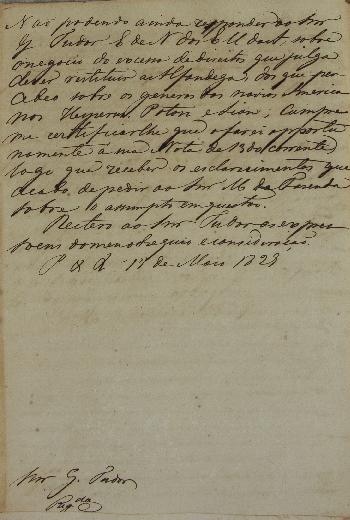 Não podendo ainda responder ao Snr
G. Tudor E. de N. dos E. U. da A. sobre
o negocio do excesso de direitos que julga
dever restituir a Alfandega, dos que per-
cebeo sobre os generos dos navios America-
nos Heyperion, Poton, e Sion, cumpre
me certificarlhe que o farei opportu
nomente á sua Nota de 13 do corrente
logo que receber os esclarecimentos que
acabo de pedir ao Snr M. da Fazenda
sobre o assumpto em questão.
Reitero ao Snr Tudor as expres
soens do meu obsequio e consideração
P. 17 de Maio 1828
Snr G. Tudor